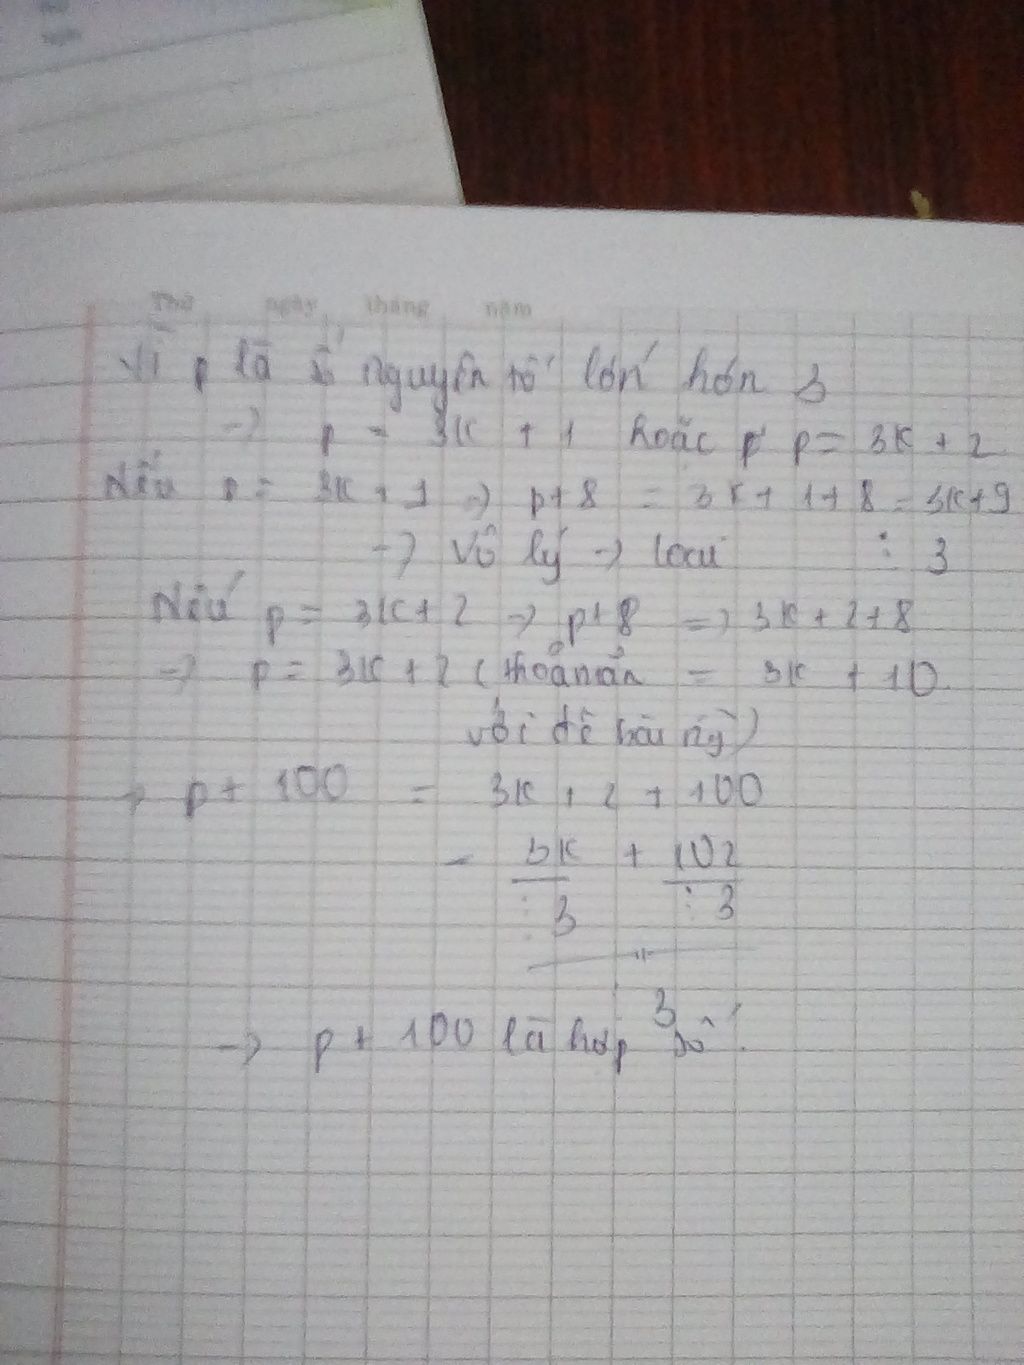 Thứ ngày tháng năm
Vì p là số nguyên tố lớn hơn 3
→ p = 3K + 1 hoặc p p = 3K + 2
Nếu p = 3K + 1 → p+8 = 3K + 1 + 8 = 3K+9
→ Vô lý → loại ⋮ 3
Nếu p = 3K+2 → p+8 => 3K + 2 + 8
→ p = 3K + 2 (thoả mãn = 3K + 10
với đề bài
→ p + 100 = 3K + 2 + 100
= 3K + 102
⋮ 3 ⋮ 3
3
→ p + 100 là hợp số.